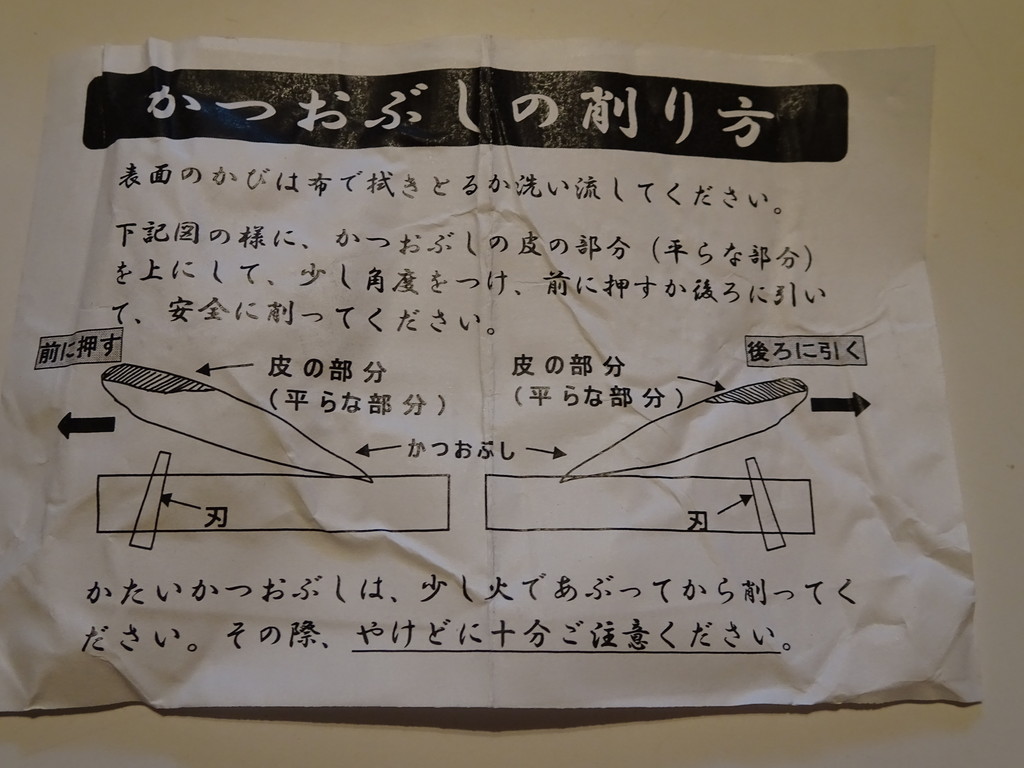 かつおぶしの削り方
表面のかびは布で拭きとるか洗い流してください。
下記図の様に、かつおぶしの皮の部分（平らな部分）
を上にして、少し角度をつけ、前に押すか後ろに引い
て、安全に削ってください。
前に押す
皮の部分
（平らな部分）
皮の部分
（平らな部分）
後ろに引く
かつおぶし
刃
刃
かたいかつおぶしは、少し火であぶってから削ってく
ださい。その際、やけどに十分ご注意ください。